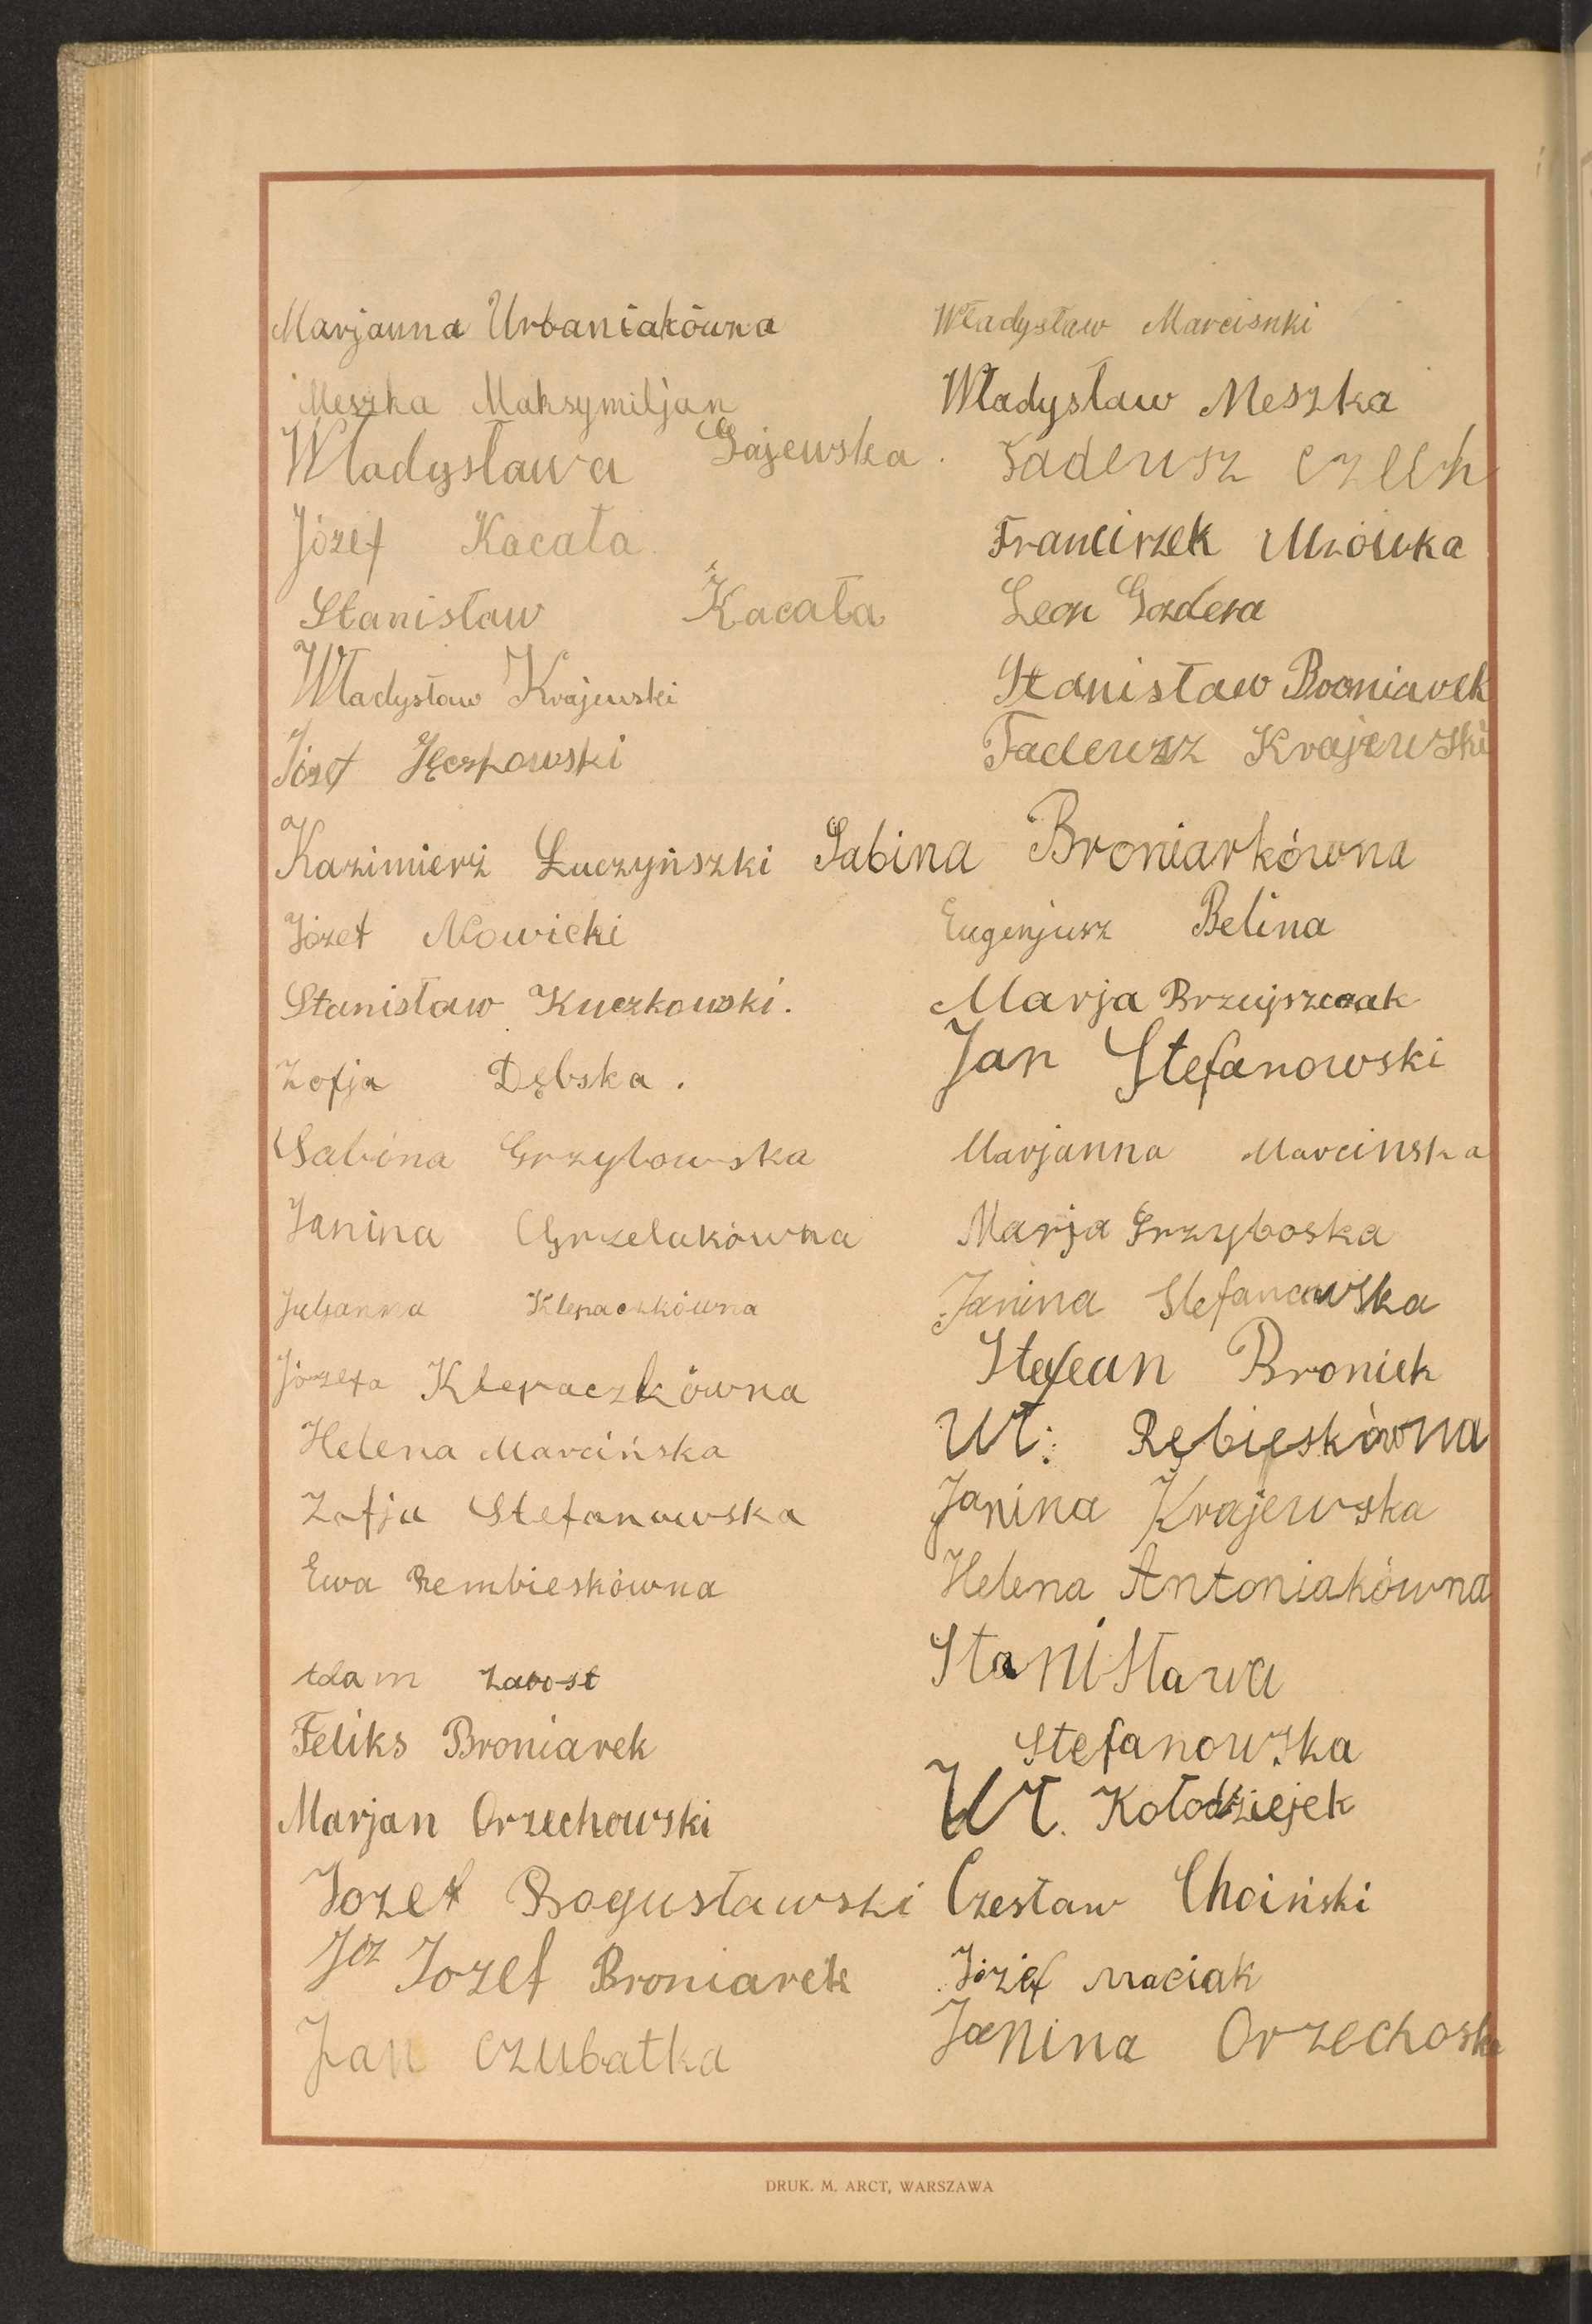 Marjanna Urbaniakówna
Meszka Maksymiljan
Władysława Gajewska.
Józef Kacała
Stanisław Kacała
Władysław Krajewski
Józef Jęczkowski
Kazimierz Łuczyńszki
Józef Nowicki
Stanisław Kuczkowski.
Zofja Dębska.
Sabina Grzybowska
Janina Grzelakówna
Juljanna Klepaczkówna
Józefa Klepaczkówna
Helena Marcińska
Zofja Stefanowska
Ewa Rembieskówna
Adam Zawost
Feliks Broniarek
Marjan Orzechowski
Jozef Bogusławski
Joz Jozef Broniarek
Jan Czubatka
Władysław Marcisnki
Władysław Meszka
Tadeusz Czech
Franciszek Mrówka
Leon Gozdera
Stanisław Broniarek
Tadeusz Krajewski
Sabina Broniarkówna
Eugenjusz Belina
Marja
Jan Stefanowski
Marjanna Marcinska
Marja Grzyboska
Janina Stefanowska
Stefean Broniek
Wł: Rębieskówna
Janina Krajewska
Helena Antoniakówna
Stanisława
Stefanowska
Wł. Kołodziejek
Czesław Choiński
Józef Maciak
Janina Orzechoska
DRUK. M. ARCT, WARSZAWA